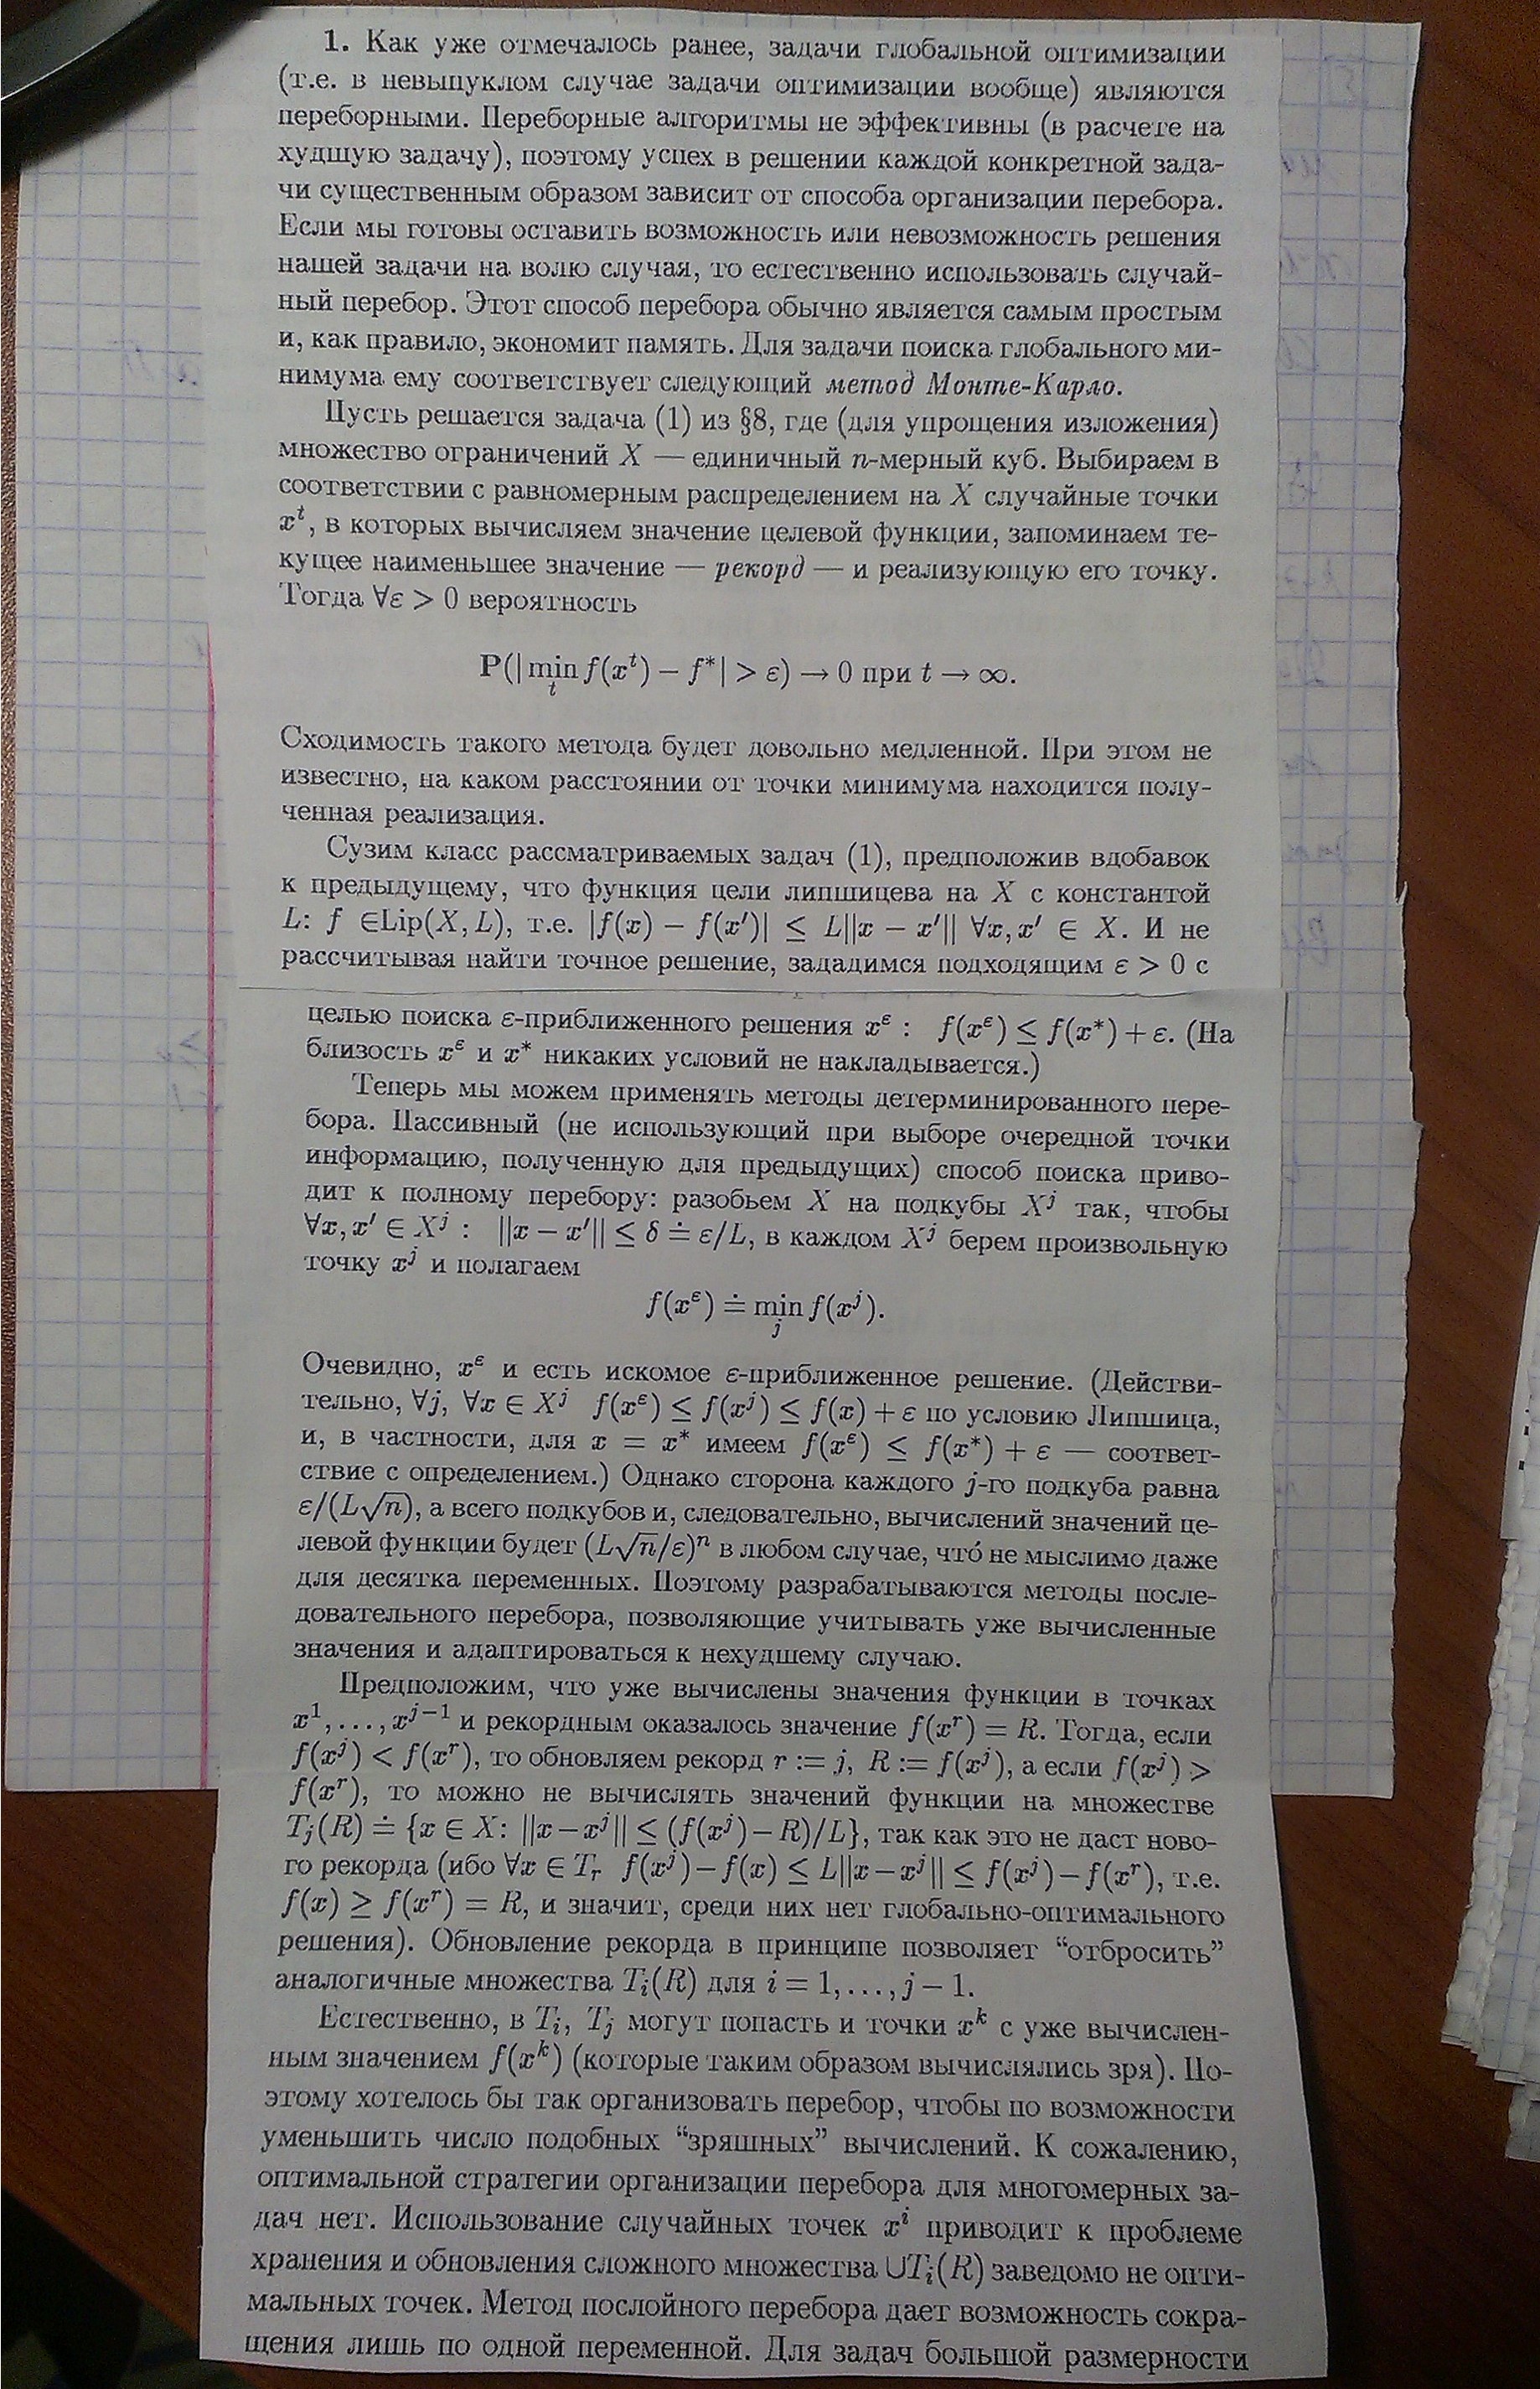 1. Как уже отмечалось ранее, задачи глобальной оптимизации
(т.е. в невыпуклом случае задачи оптимизации вообще) являются
переборными. Переборные алгоритмы не эффективны (в расчете на
худшую задачу), поэтому успех в решении каждой конкретной зада-
чи существенным образом зависит от способа организации перебора.
Если мы готовы оставить возможность или невозможность решения
нашей задачи на волю случая, то естественно использовать случай-
ный перебор. Этот способ перебора обычно является самым простым
и, как правило, экономит память. Для задачи поиска глобального ми-
нимума ему соответствует следующий метод Монте-Карло.
Пусть решается задача (1) из §8, где (для упрощения изложения)
множество ограничений X — единичный n-мерный куб. Выбираем в
соответствии с равномерным распределением на X случайные точки
xᵗ, в которых вычисляем значение целевой функции, запоминаем те-
кущее наименьшее значение — рекорд — и реализующую его точку.
Тогда ∀ε > 0 вероятность
P(| min_t f(xᵗ) − f*| > ε) → 0 при t → ∞.
Сходимость такого метода будет довольно медленной. При этом не
известно, на каком расстоянии от точки минимума находится полу-
ченная реализация.
Сузим класс рассматриваемых задач (1), предположив вдобавок
к предыдущему, что функция цели липшицева на X с константой
L: f ∈Lip(X, L), т.е. |f(x) − f(x′)| ≤ L||x − x′|| ∀x, x′ ∈ X. И не
рассчитывая найти точное решение, зададимся подходящим ε > 0 с
целью поиска ε-приближенного решения x^ε : f(x^ε) ≤ f(x*) + ε. (На
близость x^ε и x* никаких условий не накладывается.)
Теперь мы можем применять методы детерминированного пере-
бора. Пассивный (не использующий при выборе очередной точки
информацию, полученную для предыдущих) способ поиска приво-
дит к полному перебору: разобьем X на подкубы Xʲ так, чтобы
∀x, x′ ∈ Xʲ : ||x − x′|| ≤ δ ≐ ε/L, в каждом Xʲ берем произвольную
точку xʲ и полагаем
f(x^ε) ≐ min_j f(xʲ).
Очевидно, x^ε и есть искомое ε-приближенное решение. (Действи-
тельно, ∀j, ∀x ∈ Xʲ f(x^ε) ≤ f(xʲ) ≤ f(x) + ε по условию Липшица,
и, в частности, для x = x* имеем f(x^ε) ≤ f(x*) + ε — соответ-
ствие с определением.) Однако сторона каждого j-го подкуба равна
ε/(L√n), а всего подкубов и, следовательно, вычислений значений це-
левой функции будет (L√n/ε)ⁿ в любом случае, что́ не мыслимо даже
для десятка переменных. Поэтому разрабатываются методы после-
довательного перебора, позволяющие учитывать уже вычисленные
значения и адаптироваться к нехудшему случаю.
Предположим, что уже вычислены значения функции в точках
x¹, . . . , xʲ⁻¹ и рекордным оказалось значение f(xʳ) = R. Тогда, если
f(xʲ) < f(xʳ), то обновляем рекорд r := j, R := f(xʲ), а если f(xʲ) >
f(xʳ), то можно не вычислять значений функции на множестве
Tⱼ(R) ≐ {x ∈ X: ||x−xʲ|| ≤ (f(xʲ)−R)/L}, так как это не даст ново-
го рекорда (ибо ∀x ∈ Tᵣ f(xʲ)−f(x) ≤ L||x−xʲ|| ≤ f(xʲ)−f(xʳ), т.е.
f(x) ≥ f(xʳ) = R, и значит, среди них нет глобально-оптимального
решения). Обновление рекорда в принципе позволяет “отбросить”
аналогичные множества Tᵢ(R) для i = 1, . . . , j − 1.
Естественно, в Tᵢ, Tⱼ могут попасть и точки xᵏ с уже вычислен-
ным значением f(xᵏ) (которые таким образом вычислялись зря). По-
этому хотелось бы так организовать перебор, чтобы по возможности
уменьшить число подобных “зряшных” вычислений. К сожалению,
оптимальной стратегии организации перебора для многомерных за-
дач нет. Использование случайных точек xⁱ приводит к проблеме
хранения и обновления сложного множества ∪Tᵢ(R) заведомо не опти-
мальных точек. Метод послойного перебора дает возможность сокра-
щения лишь по одной переменной. Для задач большой размерности